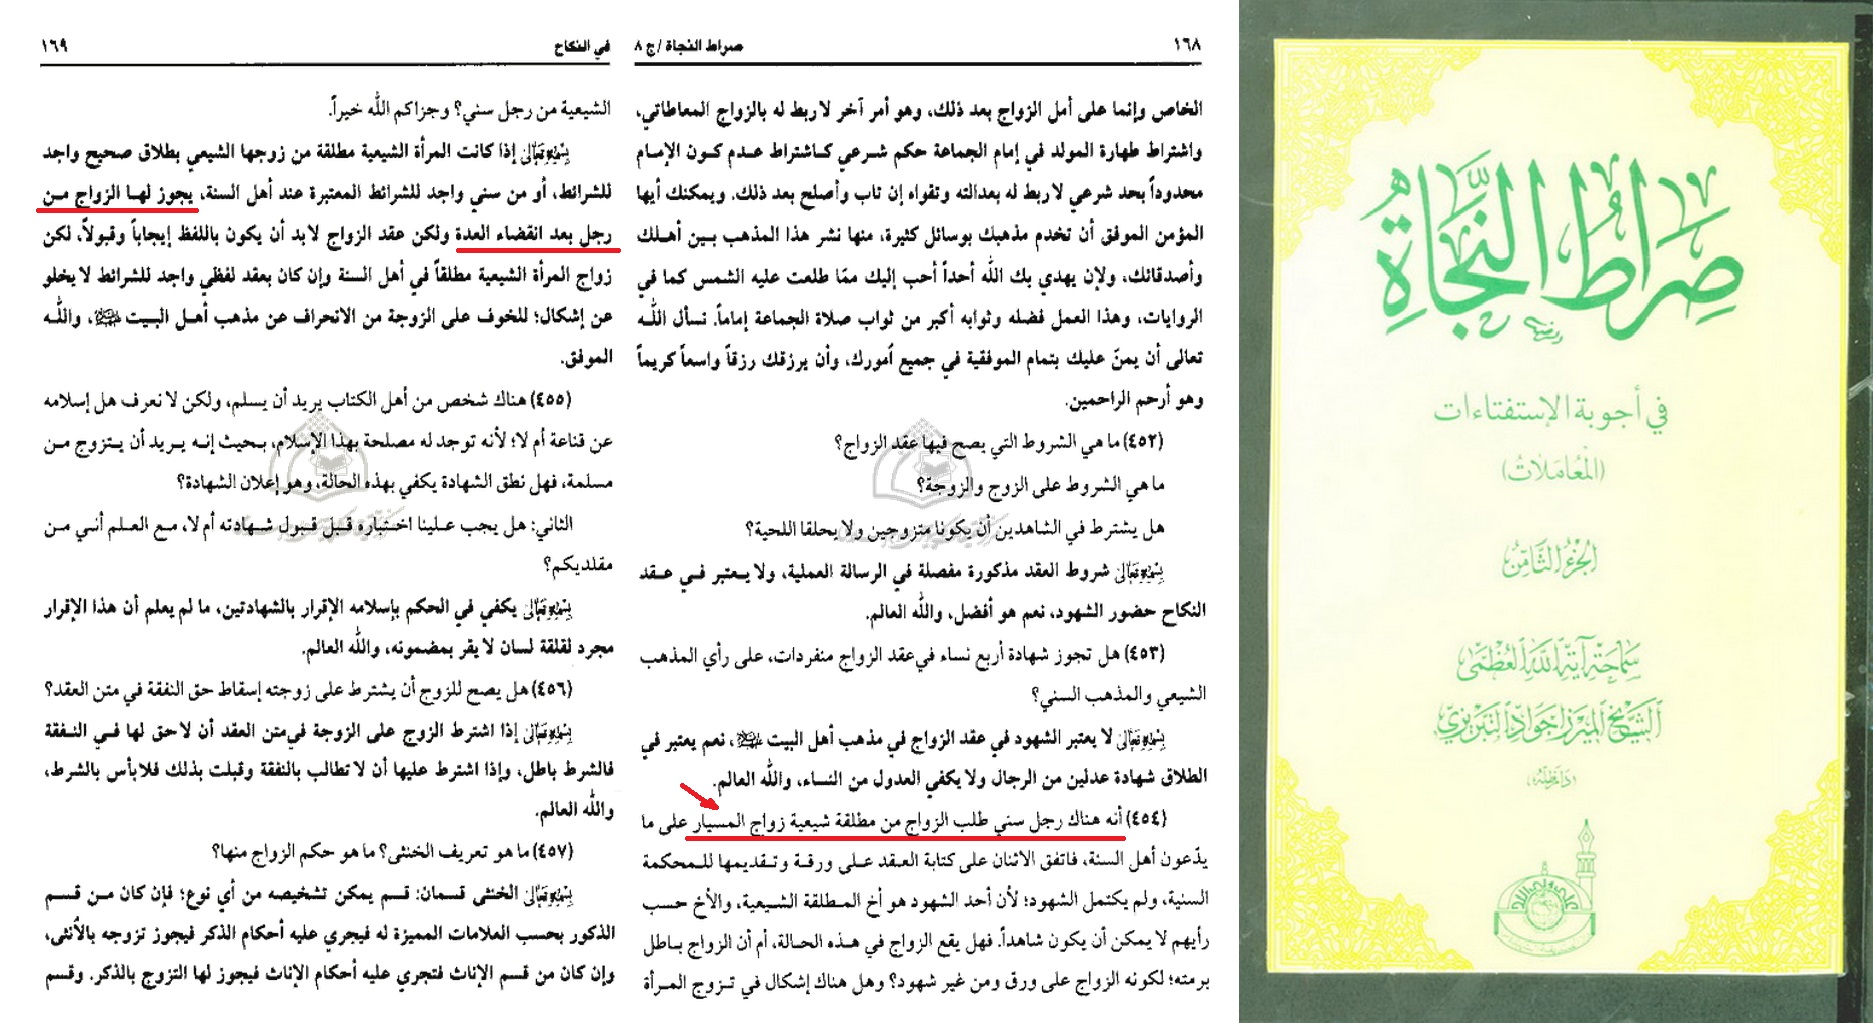 ١٦٨ صراط النجاة /ج ٨
الخاص وإنما على أمل الزواج بعد ذلك، وهو أمر آخر لا ربط له بالزواج المعاطاتي،
واشتراط طهارة المولد في إمام الجماعة حكم شرعي كاشتراط عدم كون الإمام
محدوداً بحد شرعي لا ربط له بعدالته وتقواه إن تاب وأصلح بعد ذلك. ويمكنك أيها
المؤمن الموفق أن تخدم مذهبك بوسائل كثيرة، منها نشر هذا المذهب بين أهلك
وأصدقائك، ولإن يهدي بك الله أحداً أحب إليك ممّا طلعت عليه الشمس كما في
الروايات، وهذا العمل فضله وثوابه أكبر من ثواب صلاة الجماعة إماماً. نسأل الله
تعالى أن يمنّ عليك بتمام الموفقية في جميع أمورك، وأن يرزقك رزقاً واسعاً كريماً
وهو أرحم الراحمين.
(٤٥٢) ما هي الشروط التي يصح فيها عقد الزواج؟
ما هي الشروط على الزوج والزوجة؟
هل يشترط في الشاهدين أن يكونا متزوجين ولا يحلقا اللحية؟
بسمه تعالى شروط العقد مذكورة مفصلة في الرسالة العملية، ولا يعتبر في عقد
النكاح حضور الشهود، نعم هو أفضل، والله العالم.
(٤٥٣) هل تجوز شهادة أربع نساء في عقد الزواج منفردات، على رأي المذهب
الشيعي والمذهب السني؟
بسمه تعالى لا يعتبر الشهود في عقد الزواج في مذهب أهل البيت، نعم يعتبر في
الطلاق شهادة عدلين من الرجال ولا يكفي العدول من النساء، والله العالم.
(٤٥٤) أنه هناك رجل سني طلب الزواج من مطلقة شيعية زواج المسيار على ما
يدّعون أهل السنة، فاتفق الاثنان على كتابة العقد على ورقة وتقديمها للمحكمة
السنية، ولم يكتمل الشهود؛ لأن أحد الشهود هو أخ المطلقة الشيعية، والأخ حسب
رأيهم لا يمكن أن يكون شاهداً. فهل يقع الزواج في هذه الحالة، أم أن الزواج باطل
برمته؛ لكونه الزواج على ورق ومن غير شهود؟ وهل هناك إشكال في تزوج المرأة
في النكاح ١٦٩
الشيعية من رجل سني؟ وجزاكم الله خيراً.
بسمه تعالى إذا كانت المرأة الشيعية مطلقة من زوجها الشيعي بطلاق صحيح واجد
للشرائط، أو من سني واجد للشرائط المعتبرة عند أهل السنة، يجوز لها الزواج من
رجل بعد انقضاء العدة ولكن عقد الزواج لابد أن يكون باللفظ إيجاباً وقبولاً، لكن
زواج المرأة الشيعية مطلقاً في أهل السنة وإن كان بعقد لفظي واجد للشرائط لا يخلو
عن إشكال؛ للخوف على الزوجة من الانحراف عن مذهب أهل البيت، والله
الموفق.
(٤٥٥) هناك شخص من أهل الكتاب يريد أن يسلم، ولكن لا نعرف هل إسلامه
عن قناعة أم لا؛ لأنه توجد له مصلحة بهذا الإسلام، بحيث إنه يريد أن يتزوج من
مسلمة، فهل نطق الشهادة يكفي بهذه الحالة، وهو إعلان الشهادة؟
الثاني: هل يجب علينا اختباره قبل قبول شهادته أم لا، مع العلم أني من
مقلديكم؟
بسمه تعالى يكفي في الحكم بإسلامه الإقرار بالشهادتين، ما لم يعلم أن هذا الإقرار
مجرد لقلقة لسان لا يقر بمضمونه، والله العالم.
(٤٥٦) هل يصح للزوج أن يشترط على زوجته إسقاط حق النفقة في متن العقد؟
بسمه تعالى إذا اشترط الزوج على الزوجة في متن العقد أن لا حق لها في النفقة
فالشرط باطل، وإذا اشترط عليها أن لا تطالب بالنفقة وقبلت بذلك فلا بأس بالشرط،
والله العالم.
(٤٥٧) ما هو تعريف الخنثى؟ ما هو حكم الزواج منها؟
بسمه تعالى الخنثى قسمان: قسم يمكن تشخيصه من أي نوع؛ فإن كان من قسم
الذكور بحسب العلامات المميزة له فيجري عليه أحكام الذكر فيجوز تزوجه بالأنثى،
وإن كان من قسم الإناث فتجري عليه أحكام الإناث فيجوز لها التزوج بالذكر. وقسم
صراط النجاة
في أجوبة الإستفتاءات
(المعاملات)
الجزء الثامن
سماحة آية الله العظمى
الشيخ الميرزا جواد التبريزي
(دام ظله)